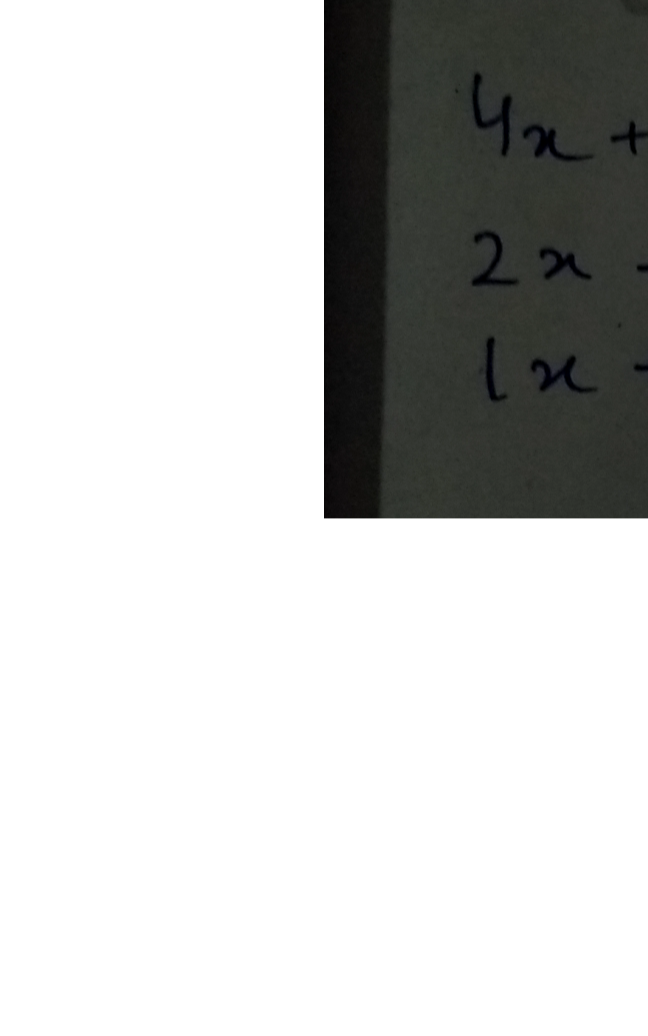 4x +
2x -
1x -